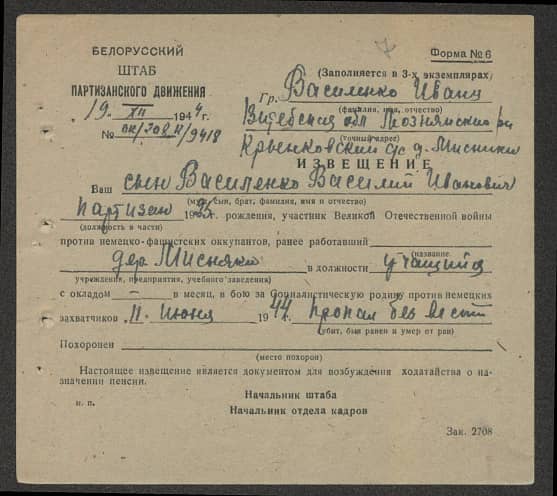 БЕЛОРУССКИЙ
ШТАБ
ПАРТИЗАНСКОГО ДВИЖЕНИЯ
19. XII 1944 г.
№ ок/308 н/9418
Форма № 6
(Заполняется в 3-х экземплярах)
Гр. Василенко Иванц
(фамилия, имя, отчество)
Витебская обл Лиознянский р-н
(точный адрес)
Крынковский с/с д. Мисники
ИЗВЕЩЕНИЕ
Ваш сын Василенко Василий Иванович
(муж, сын, брат, фамилия, имя и отчество)
партизан 1925 г. рождения, участник Великой Отечественной войны
(должность в части)
против немецко-фашистских оккупантов, ранее работавший
(название
дер. Мисняки в должности учащийся
учреждения, предприятия, учебного заведения)
с окладом — в месяц, в бою за Социалистическую родину против немецких
захватчиков 11. Июня 1944 пропал без вести
(убит, был ранен и умер от ран)
Похоронен
(место похорон)
Настоящее извещение является документом для возбуждения ходатайства о на-
значении пенсии.
Начальник штаба
м. п.
Начальник отдела кадров
Зак. 2708